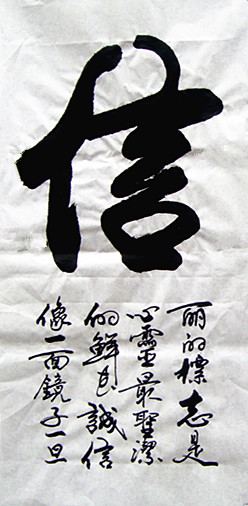 信
丽的標志是
心靈最聖潔
的鮮花誠信
像一面鏡子一旦